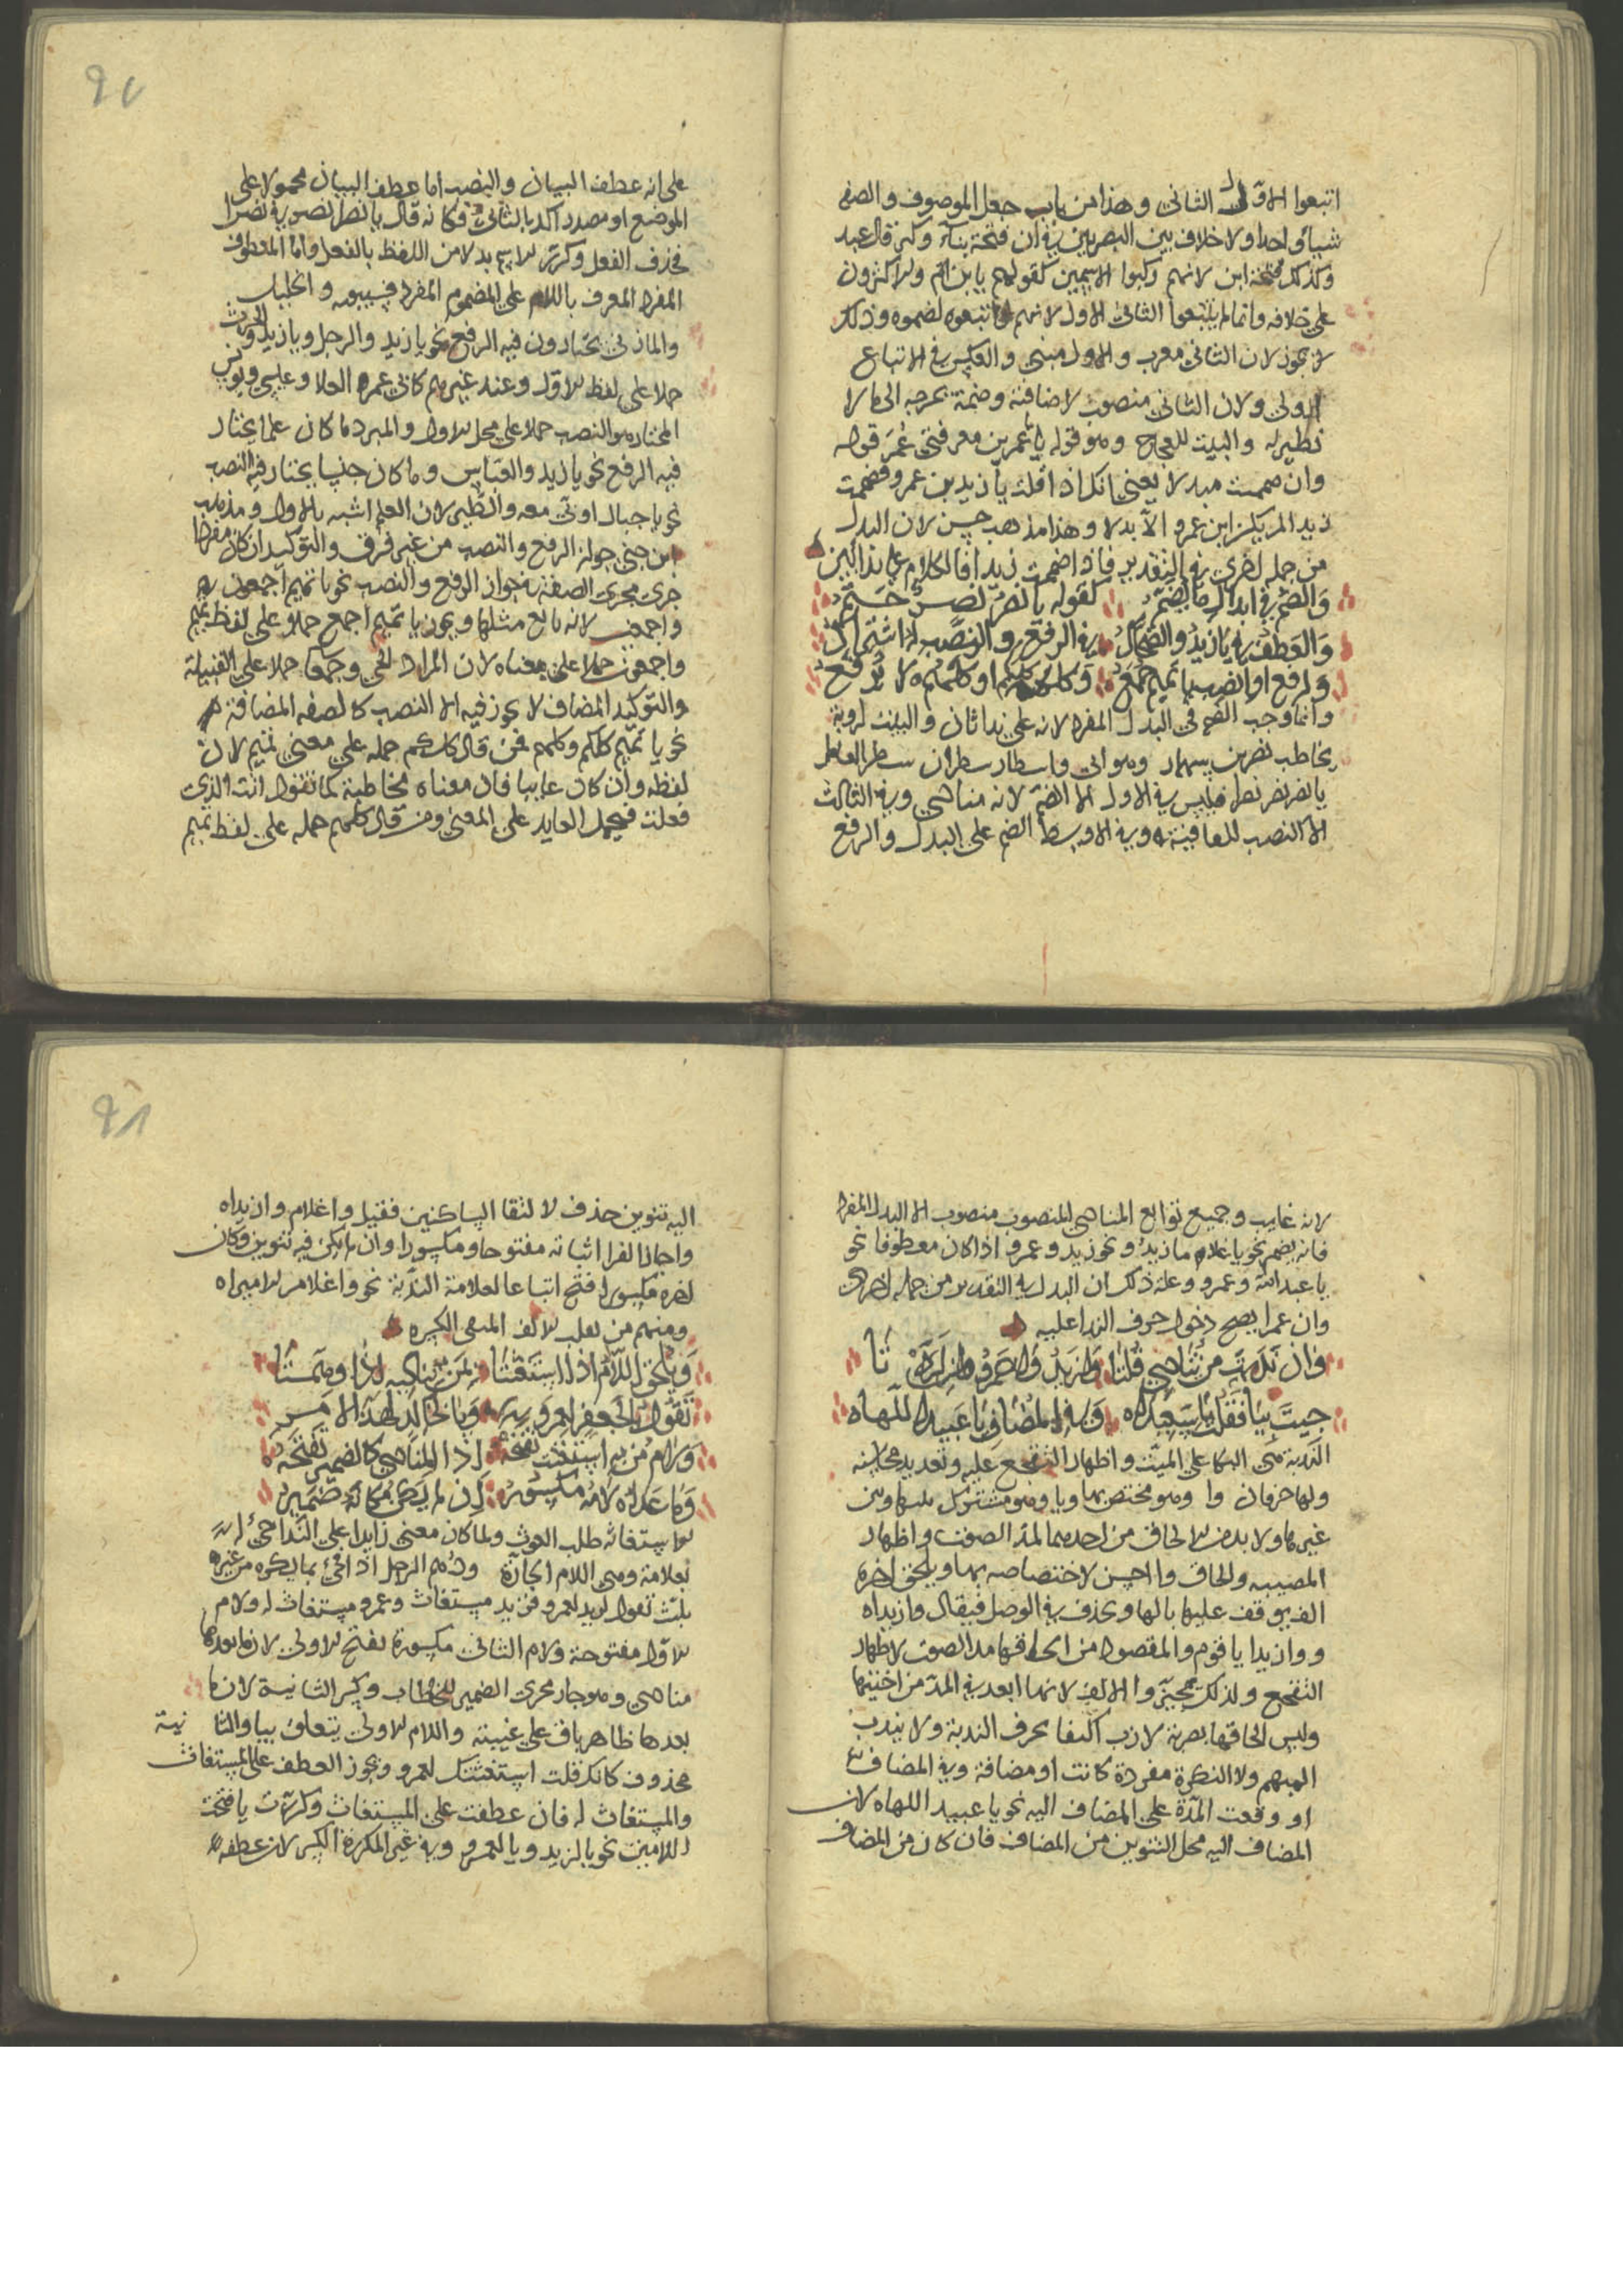 اتبعوا الاول الثاني وهذا من باب جعل الموصوف والصفه
شيأ واحدا ولا خلاف بين البصريين في ان فتحة بناء وكن قال عبد
وكذلك فتحة ابن لانهم ركبوا الاسمين كقولهم يابن ام والاكثرون
على خلافه وانما لم يتبعوا الثاني الاول لانهم لو اتبعوه لضموه وذلك
لا يجوز لان الثاني معرب والاول مبني والعكس في الاتباع
اولى ولان الثاني منصوب لاضافته وضمة يخرجه الى ما لا
نظير له والبيت للعجاج وهو قوله يا عمر بن معمر فتى عمر قوله
وان ضممت مبدلا يعني انك اذا قلت يا زيد بن عمرو فضممت
زيد الم يكن ابن عمرو الا بدلا وهذا مذهب حسن لان البدل
من جملة اخرى في التقدير فاذا ضممت زيدا فالكلام على نداءين
والضم في ابدال ما يضم كقوله يا نصر نصر حتم
والعطف في يا زيد والضحاك في الرفع والنصب له اشتراك
وارفع او انصب يا تميم اجمع وكلكم او كلهم لا ترفع
وانما وجب الضم في البدل المفرد لانه على ندا ثان والبيت لروبة
يخاطب نصر بن سيار وهو اني واسطار سطرن سطرا لقائل
يا نصر نصر نصرا فليس في الاول الا الضم لانه منادى وفي الثالث
الا النصب للقافية وفي الاوسط الضم على البدل والرفع
على انه عطف البيان والنصب اما عطف البيان محمولا على
الموضع او مصدر اكد بالثاني فكانه قال يا نصر انصرني نصرا
فحذف الفعل وكرر الاسم بدلا من اللفظ بالفعل واما المعطوف
المفرد المعرف باللام على المضموم المفرد فسيبويه والخليل
والمازني يختارون فيه الرفع نحو يا زيد والرجل ويا زيد والحرث
حملا على لفظ الاول وعند غيرهم كابي عمرو بن العلا وعيسى ويونس
المختار هو النصب حملا على محل الاول والمبرد ما كان علما يختار
فيه الرفع نحو يا زيد والعباس وما كان جنسا يختار فيه النصب
نحو يا جبال اوبي معه والطير لان العلم اشبه بالاول ومذهب
ابن جني جواز الرفع والنصب من غير فرق والتوكيد ان كان مفردا
جرى مجرى الصفة في جواز الرفع والنصب نحو يا تميم اجمعون
واجمعين لانه تابع مثلها ويجوز يا تميم اجمع حملا على لفظ تميم
واجمعون حملا على معناه لان المراد الحي وجمعا حملا على القبيلة
والتوكيد المضاف لا يجوز فيه الا النصب كالصفه المضافة
نحو يا تميم كلكم وكلهم فمن قال كلكم حمله على معنى تميم لان
لفظه وان كان غايبا فان معناه مخاطبة كما تقول انت الذي
فعلت فيحمل العايد على المعنى ومن قال كلهم حمله على لفظ تميم
لانه غايب وجميع توابع المنادى المنصوب منصوب الا البدل المفرد
فانه يضم نحو يا غلامنا زيد ونحو زيد وعمرو اذا كان معطوفا نحو
يا عبد الله وعمرو وعلة ذلك ان البدل في التقدير من جملة اخرى
وان عمرا يصح دخول حرف الندا عليه
وان ندبت من تنادي قلتا وازيد واعمرو وان اردتا
جيت بيا فقل يا سعيداه وفي المضاف يا عبيد اللهاه
الندبة هي البكا على الميت واظهار التفجع عليه وتعديد محاسنه
ولها حرفان وا وهو مختص بها ويا وهو مشترك بينها وبين
غيرها ولا بد من الحاق من احدهما لمد الصوت واظهار
المصيبه والحاق وا احسن لاختصاصه بها ويلحق اخره
الف يوقف عليها بالها ويحذف في الوصل فيقال وازيداه
ووازيدا يا قوم والمقصود من الحاقها مد الصوت لاظهار
التفجع ولذلك تخيروا الالف لانها ابعد في المد من اختيها
وليس الحاقها بضربة لازب اكتفا بحرف الندبة ولا يندب
المبهم ولا النكرة مفردة كانت او مضافة وفي المضاف
او وقعت المدة على المضاف اليه نحو يا عبيد اللهاه لان
المضاف اليه محل التنوين من المضاف فان كان من المضاف
اليه تنوين حذف لالتقا الساكنين فقيل واغلام وازيداه
واجاز الفرا اثباته مفتوحا ومكسورا وان لم يكن فيه تنوين وكان
اخره مكسورا فتح اتباعا لعلامة الندبة نحو واغلام الاميراه
ومنهم من يقلب الالف الى الكسرة
ويلحق اللام اذا استغثتا بمن تناديه
تقول يا لجعفر لعمرو ويا لخالد لهذا الامر
ولام من به استغثت تفتحه اذ المنادى كالضمير تفتحه
وما عداه لامه مكسور اذ لم يكن مكانه ضمير
الاستغاثه طلب الغوث ولما كان معنى زايدا على الندا جيء له
بعلامة وهي اللام الجارة ودهم الرجل اذا فجئ بما يكره من غيره
يثبت تقول لزيد لعمرو فزيد مستغاث وعمرو مستغاث له ولام
الاول مفتوحة ولام الثاني مكسورة بفتح الاولى لان ما بعدها
منادى وهو جار مجرى الضمير للخطاب وكسر الثانية لان ما
بعدها ظاهر باق على غيبته واللام الاولى يتعلق بيا والثانية
محذوف كانك قلت استغثتك لعمرو ويجوز العطف على المستغاث
والمستغاث له فان عطفت على المستغاث وكررت يا فتحت
اللامين نحو يا لزيد ويا لعمرو وفي غير المكررة الكسر لان عطفه